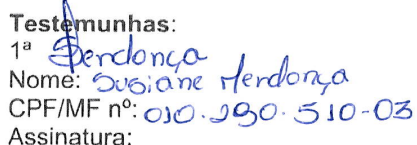 Testemunhas:
1ª Mendonça
Nome: Susiane Mendonça
CPF/MF nº: 010.290.510-03
Assinatura: